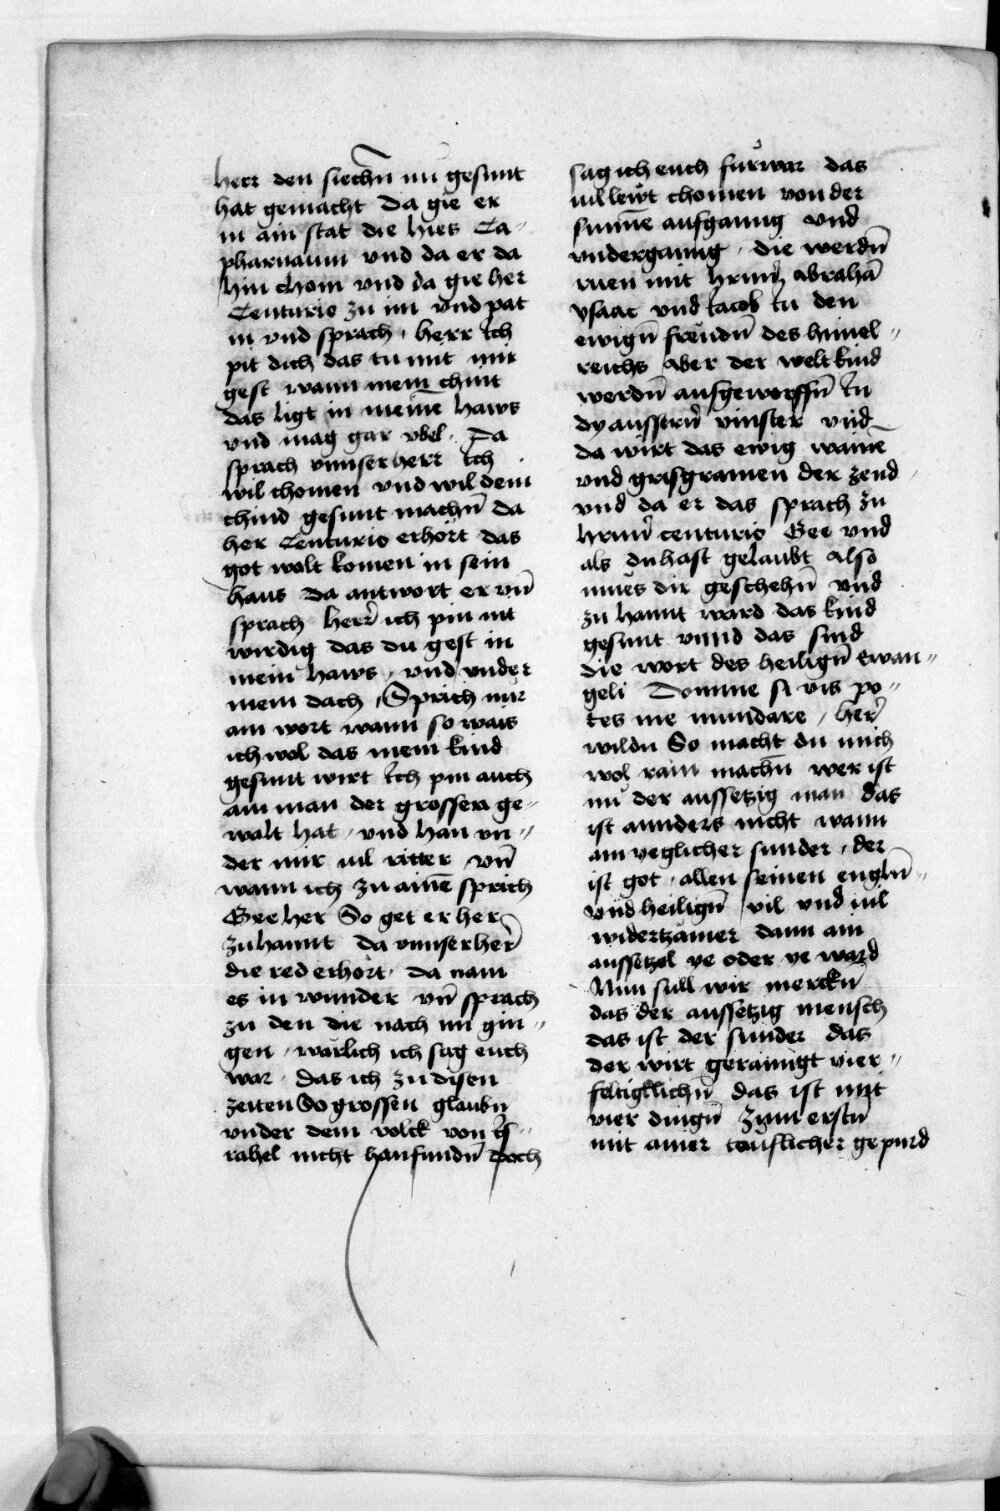 herr den siechn̄ nu gesunt
hat gemacht Da gie er
in ain stat die hies Ca-
pharnaum vnd da er da
hin chom vnd da gie her
Centurio zu im vnd pat
in vnd sprach, herr Ich
pit dich das tu mit mir
gest wann mein chint
das ligt in meinē haws
vnd mag gar vbel. Da
sprach vnnser herr Ich
wil chomen vnd wil dem
chind gesunt machn̄ da
her Centurio erhort das
got wolt komen in sein
haus Da antwort er vn̄
sprach herr ich pin nit
wirdig das du gest in
mein haws, vnd vnder
mein dach, Sprich nur
ain wort wann so wais
ich wol das mein kind
gesunt wirt Ich pin auch
ain man der grossen ge-
walt hat, vnd han vn„
der mir vil ritter vn̄
wann ich zu ainē sprich
Gee her So get er her
zuhannt da vnnser her̄
die red erhört, da nam
es in wunder vn̄ sprach
zu den die nach im gin„
gen, warlich ich sag euch
war, das ich zu disen
zeiten So grossen glaubn̄
vnder dem volck von Is„
rahel nicht han fundn̄ Doch
sag ich euch furwar das
vil lewt chomen von der
sunne aufganng vnd
vndergannng, die werdn̄
ruen mit hrnn̄ abrahā
ysaac vnd Iacob In den
ewign̄ freudn̄ des himel„
reichs Aber der welt kind
werdn̄ ausgeworffn̄ In
dy aussern̄ vinster vnd
da wirt das ewig waine
vnd grisgramen der zend
vnd da er das sprach zu
hrnn̄ centurio Gee vnd
als du hast gelaubt Also
mues dir geschehn̄ vnd
zu hannt ward das kind
gesunt vnnd das sind
die wort des heilign̄ Ewan„
geli Domine si vis po„
tes me mundare, her̄
wildu So macht du mich
wol rain machn̄ wer ist
nu der aussetzig man das
ist annders nicht wann
ain yeglicher sunder, der
ist got, allen seinen engln̄„
vnd heilign̄ vil vnd vil
widerzämer dann ain
aussetzel ye oder ye ward
Nun sull wir merckn̄
das der aussetzig mensch
das ist der sunder das
der wirt gerainigt vier„
feltigklichn̄ das ist mit
vier dingn̄ Zum erstn̄
mit ainer teuflicher gepurd